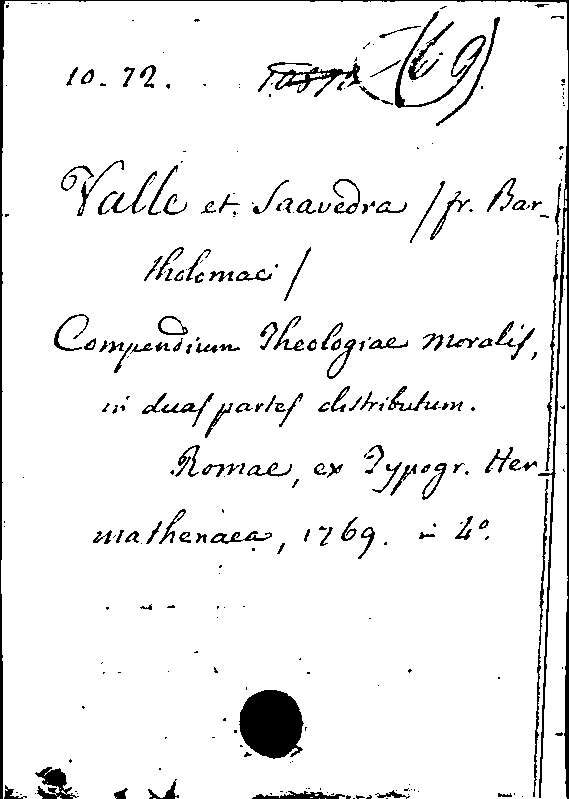 10.72.
Valle et Saavedra /fr. Bar-
tholomaei/
Compendium Theologiae moralis,
in duas partes distributum.
Romae, ex Typogr. Her-
mathenaea, 1769. in 4º.